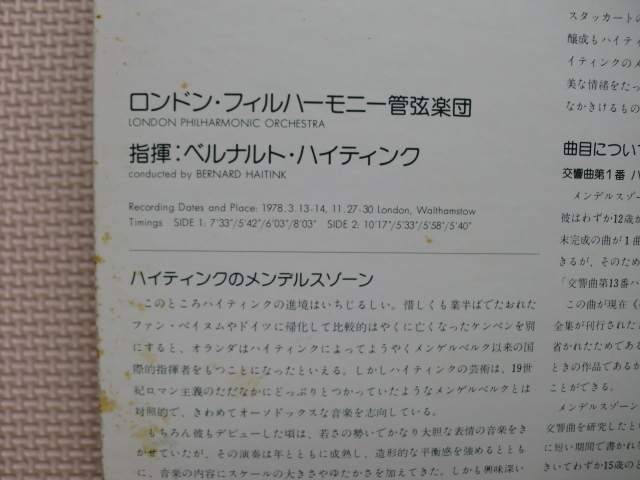 ロンドン・フィルハーモニー管弦楽団
LONDON PHILHARMONIC ORCHESTRA
指揮:ベルナルト・ハイティンク
conducted by BERNARD HAITINK
Recording Dates and Place: 1978.3.13-14, 11.27-30 London, Walthamstow
Timings SIDE 1: 7'33"/5'42"/6'03"/8'03" SIDE 2: 10'17"/5'33"/5'58"/5'40"
ハイティンクのメンデルスゾーン
このところハイティンクの進境はいちじるしい。惜しくも業半ばでたおれた
ファン・ベイヌムやドイツに帰化して比較的はやくに亡くなったケンペンを別
にすると、オランダはハイティンクによってようやくメンゲルベルク以来の国
際的指揮者をもつことになったといえる。しかしハイティンクの芸術は、19世
紀ロマン主義のただなかにどっぷりとつかっていたようなメンゲルベルクとは
対照的で、きわめてオーソドックスな音楽を志向している。
もちろん彼もデビューした頃は、若さの勢いでかなり大胆な表情の音楽をき
かせていたが、その演奏は年とともに成熟し、造形的な平衡感を強めるととも
に、音楽の内容にスケールの大きさやゆたかさを加えてきた。しかも興味深い
スタッカートの
醸成もハイティ
イティンクのメ
美な情緒をたっ
なかきけるもの
曲目につい
交響曲第1番 ハ
メンデルスゾー
彼はわずか12歳か
末完成の曲が1曲
きるが、そのため
「交響曲第13番ハ
この曲が現在
全集が刊行された
省かれたためである
ときの作品であるか
ことができる。
メンデルスゾーン
交響曲を研究したとい
に短い期間で書かれ
きいてわずか15歳のと